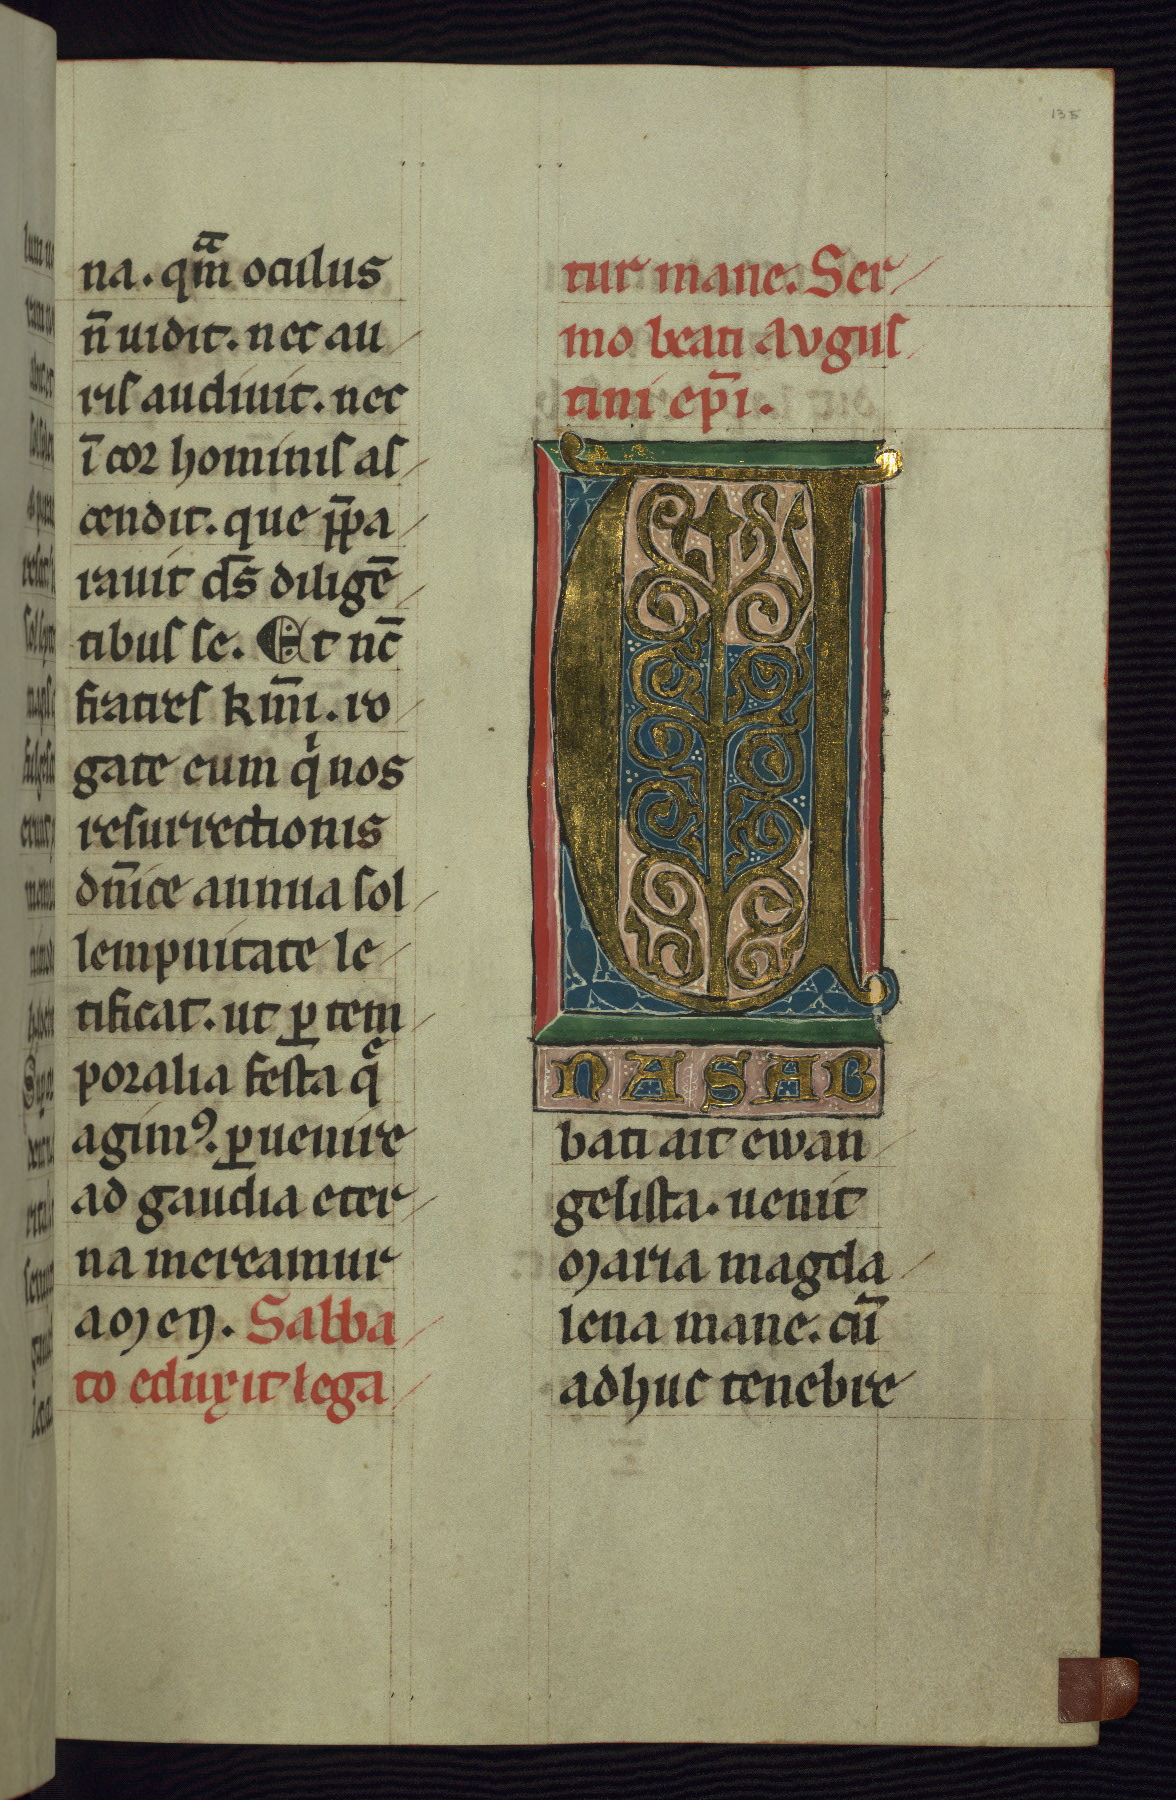 135
na. qm̅ oculus
n̅ uidit. nec au
ris audiuit. nec
i̅ cor hominis as
cendit. que p̅pa
rauit ds̅ diligē
tibus se. Et nc̅
fratres km̅i. ro
gate eum qͥ nos
resurrectionis
dn̅ice annua sol
lempnitate le
tificat. ut ꝑ tem
poralia festa q̄
agimꝰ. ꝑuenire
ad gaudia eter
na mereamur
amen. Sabba
to eduxit lega
tur mane. Ser
mo beati Augus
tini ep̅i.
U
NA SAB
bati ait ewan
gelista. uenit
Maria magda
lena mane. cu̅
adhuc tenebre